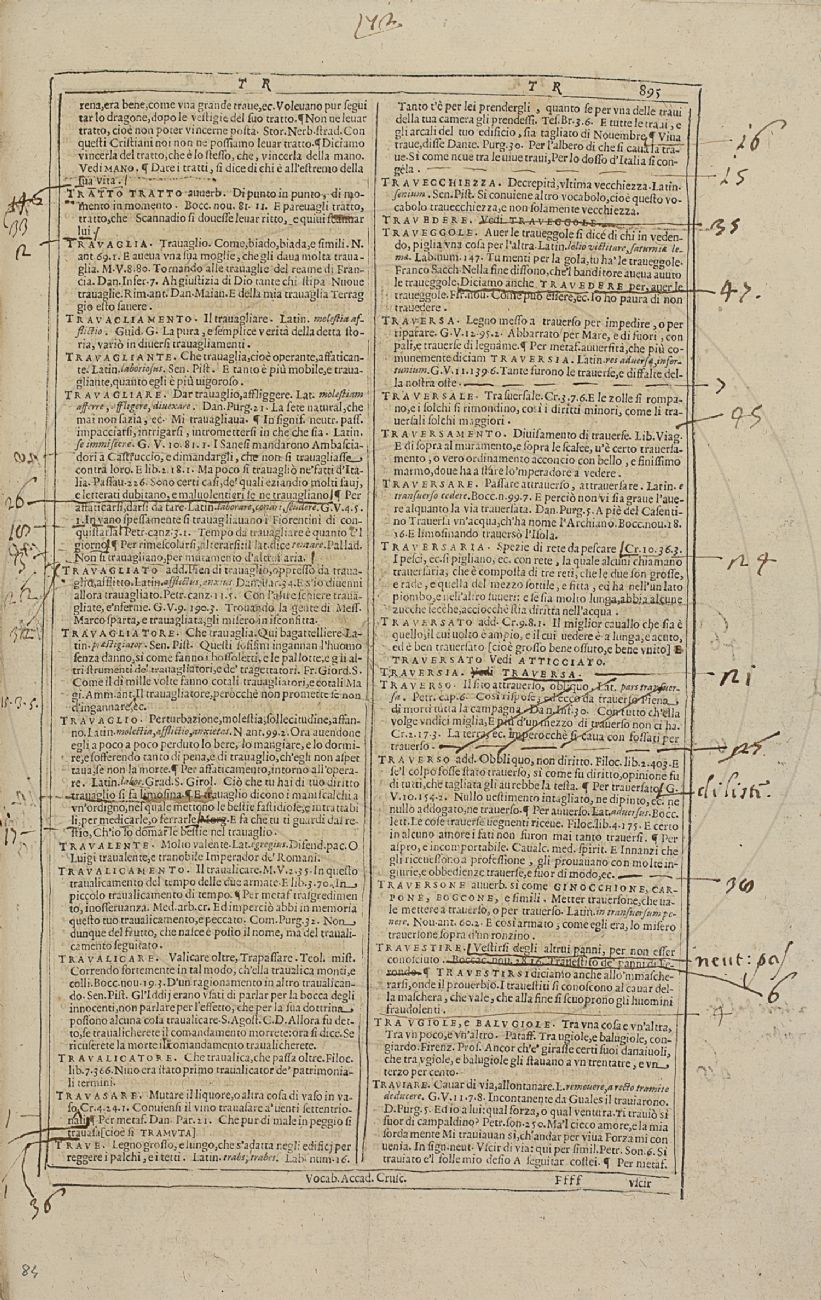 TR
TR
895
rena, era bene, come vna grande traue, ec. Voleuano pur segui
tar lo dragone, dopo le vestigie del suo tratto. ¶ Non ne leuar
tratto, cioè non poter vincerne posta. Stor. Nerb. strad. Con
questi Cristiani noi non ne possiamo leuar tratto. ¶ Diciamo
vincerla del tratto, che è lo stesso, che, vincerla della mano.
Vedi MANO. ¶ Dare i tratti, si dice di chi è all'estremo della
sua vita.
TRATTO TRATTO auuerb. Di punto in punto, di mo-
mento in momento. Bocc. nou. 81. 11. E pareuagli tratto,
tratto, che Scannadio si douesse leuar ritto, e quiui scannar
lui
TRAVAGLIA. Trauaglio. Come, biado, biada, e simili. N.
ant 69. 1. E aueua vna sua moglie, che gli daua molta traua-
glia. M. V. 8. 80. Tornando alle trauaglie del reame di Fran-
cia. Dan. Infer. 7. Ah giustizia di Dio tante chi stipa Nuoue
trauaglie. Rim. ant. Dan. Maian. E della mia trauaglia Terrag
gio esto sauere.
TRAVAGLIAMENTO. Il trauagliare. Latin. molestia af-
flictio. Guid. G. La pura, e semplice verità della detta sto-
ria, variò in diuersi trauagliamenti.
TRAVAGLIANTE. Che trauaglia, cioè operante, affatican-
te. Latin. laboriosus. Sen. Pist. E tanto è più mobile, e traua-
gliante, quanto egli è più uigoroso.
TRAVAGLIARE. Dar trauaglio, affliggere. Lat. molestiam
afferre, affligere, diuexare. Dan. Purg. 21. La sete natural, che
mai non sazia, ec. Mi trauagliaua. ¶ In signif. neutr. pass.
impacciarsi, intrigarsi, intromettersi in che che sia. Latin.
se immiscere. G. V. 10. 81. 1. I Sanesi mandarono Ambascia-
dori a Castruccio, e dimandargli, che non si trauagliasse
contra loro. E lib. 2. 18. 1. Ma poco si trauagliò ne' fatti d'Ita-
lia. Passau. 226. Sono certi casi, de' quali eziandio molti saui,
e letterati dubitano, e maluolentieri se ne trauagliano ¶ Per
affaticarsi, darsi da fare. Latin. laborare, conari, studere. G. V. 4. 5.
1. In vano spessamente si trauagliauano i Fiorentini di con-
quistarla Petr. canz. 3. 1. Tempo da trauagliare è quanto è'l
giorno ¶ Per rimescolarsi, alterarsi. Pallad.
Non si trauagliano, per mutamento d'alcun'aria.
TRAVAGLIATO add. Pien di trauaglio, oppresso da traua-
glio, afflitto. Latin. afflictus, anxius Dan. Par. 34. E s'io diuenni
allora trauagliato. Petr. canz. 11. 5. Con l'altre schiere traua-
gliate, e'nfermie. G. V. 9. 190. 3. Trouando la gente di Mess.
Marco sparta, e trauagliata, gli misero in isconfitta.
TRAVAGLIATORE. Che trauaglia. Qui bagattelliere. La-
tin. praestigiator. Sen. Pist. Questi sofismi ingannan l'huomo
senza danno, si come fanno i bossoletti, e le pallotte, e gli al-
tri strumenti de' trauagliatori, e de' tragettatori. Fr. Giord. S.
Come il dì mille volte fanno cotali trauagliatori, e cotali Ma
gi. Amm. ant. Il trauagliatore, perocchè non promette se non
d'ingannare, ec.
TRAVAGLIO. Perturbazione, molestia, sollecitudine, affan-
no. Latin. molestia, afflictio, anxietas. N ant. 99. 2. Ora auuendone
egli a poco a poco perduto lo bere, lo mangiare, e lo dormi-
re, e sofferendo tanto di pena, e di trauaglio, ch'egli non aspet
taua, se non la morte. ¶ Per affaticamento, intorno all'opera-
re. Latin. labor. Grad. S. Girol. Ciò che tu hai di tuo diritto
trauaglio si fa limosina. ¶ E trauaglio dicono i maniscalchi a
vn'ordigno, nel quale mettono le bestie fastidiose, e intrattabi
li, per medicarlo, o ferrarle. Morg. E fa che tu ti guardi dal re-
stio, Ch'io lo domar le bestie nel trauaglio.
TRAVALENTE. Molto valente. Lat. egregius. Difend. pac. O
Luigi traualente, e tranobile Imperador de' Romani.
TRAVALICAMENTO. Il traualicare. M. V. 2. 35. In questo
traualicamento del tempo delle due armate. E lib. 3. 70. In
piccolo traualicamento di tempo. ¶ Per metaf. trasgredimen
to, inosseruanza. Med. arb. cr. Ed imperciò abbi in memoria
questo tuo traualicamento, e peccato. Com. Purg. 32. Non
dunque del frutto, che nasce è posto il nome, ma del traual-
camento seguitato.
TRAVALICARE. Valicare oltre, Trapassare. Teol. mist.
Correndo fortemente in tal modo, ch'ella traualica monti, e
colli. Bocc. nou. 19. 3. D'un ragionamento in altro traualican-
do. Sen. Pist. Gl'Iddij erano vsati di parlar per la bocca degli
innocenti, non parlare per l'effetto, che per la sua dottrina
possono alcuna cosa traualicare. S. Agost. C. D. Allora fu det-
to, se traualicherete il comandamento morrete: ora si dice. Se
ricuserete la morte il comandamento traualicherete.
TRAVALICATORE. Che traualica, che passa oltre. Filoc.
lib. 7. 366. Niuo era stato primo traualicator de' patrimonia-
li termini.
TRAVASARE. Mutare il liquore, o altra cosa di vaso in va-
so. Cr. 4. 24. 1. Conuiensi il vino trauasare a'uenti settentrio-
nali. ¶ Per metaf. Dan. Par. 21. Che pur di male in peggio si
trauasa [cioè si TRAMVTA]
TRAVE. Legno grosso, e lungo, che s'adatta negli edificj per
reggere i palchi, e i tetti. Latin. trabs, trabes. Lab. num. 16.
Tanto t'è per lei prendergli, quanto se per vna delle traui
della tua camera gli prendessi. Tes. Br. 3. 6. E tutte le traui, e
gli arcali del tuo edificio, sia tagliato di Nouembre. ¶ Viua
traue, disse Dante. Purg. 30. Per l'albero di che si caua la tra-
ue. Si come neue tra le uiue traui, Per lo dosso d'Italia si con-
gela.
TRAVECCHIEZZA. Decrepità, vltima vecchiezza. Latin.
senium. Sen. Pist. Si conuiene altro vocabolo, cioè questo vo-
cabolo trauecchiezza, e non solamente vecchiezza.
TRAVEDERE. Vedi TRAVEGGOLE.
TRAVEGGOLE. Auer le traueggole si dice di chi in veden-
do, piglia vna cosa per l'altra. Latin. lolio victitare, saturnia le
ma. Lab. num. 147. Tu menti per la gola, tu ha' le traueggole.
Franco Sacch. Nella fine dissono, che'l banditore aueua auuto
le traueggole. Diciamo anche TRAVEDERE per, auer le
traueggole. Fir. nou. Come può essere, ec. Io ho paura di non
trauedere.
TRAVERSA. Legno messo a trauerso per impedire, o per
riparare. G. V. 12. 95. 2. Abbarrato per Mare, e di fuori, con
pali, e trauerse di legname. ¶ Per metaf. auuersità, che più co-
munemente diciam TRAVERSIA. Latin. res aduersae, infor-
tunium. G. V. 11. 139. 6. Tante surono le trauerse, e diffalte del-
la nostra oste.
TRAVERSALE. Trasuersale. Cr. 3. 7. 6. E le zolle si rompa-
no, e i solchi si rimondino, così i diritti minori, come li tra-
uersali solchi maggiori.
TRAVERSAMENTO. Diuisamento di trauerse. Lib. Viag.
E di sopra al muramento, e sopra le scalee, u'è certo trauersa-
mento, o vero ordinamento acconcio con bello, e finissimo
marmo, doue ha a stare lo'mperadore a vedere.
TRAVERSARE. Passare attrauerso, attrauersare. Latin. e
transuerso cedere. Bocc. n. 99. 7. E perciò non vi sia graue l'aue-
re alquanto la via trauersata. Dan. Purg. 5. A piè del Casenti-
no Trauersa vn'acqua, ch'ha nome l'Archiano. Bocc. nou. 18.
36. E limosinando trauersò l'Isola.
TRAVERSARIA. Spezie di rete da pescare [Cr. 10. 36. 3.
I pesci, ec. si pigliano, ec. con rete, la quale alcuni chiamano
trauersaria, che è composta di tre reti, che le due son grosse,
e rade, e quella del mezzo sottile, e fitta, ed ha nell'un lato
piombo, e nell'altro suueri: e se sia molto lunga, abbia alcune
zucche secche, acciocchè stia diritta nell'acqua.
TRAVERSATO add. Cr. 9. 8. 1. Il miglior cauallo che sia è
quello, il cui uolto è ampio, e il cui uedere è a lunga, e acuto,
ed è ben trauersato [cioè grosso bene ossuto, e bene vnito] E
TRAVERSATO Vedi ATTICCIATO.
TRAVERSIA. Vedi TRAVERSA.
TRAVERSO. Il sito attrauerso, obliquo. Lat. pars transuer-
sa. Petr. cap. 6. Così rispose, ed ecco da trauerso Piena
di morti tutta la campagna. Dan. Inf. 30. Con tutto ch'ella
volge vndici miglia, E più d'un mezzo di trauerso non ci ha.
Cr. 2. 17. 3. La terra, ec. imperocchè si caua con fossati per
trauerso
TRAVERSO add. Obbliquo, non diritto. Filoc. lib. 2. 403. E
se'l colpo fosse stato trauerso, si come fu diritto, opinione fu
di tutti, che tagliata gli aurebbe la testa. ¶ Per trauersato G.
V. 10. 154. 2. Nullo uestimento intagliato, ne dipinto, ec. ne
nullo addogato, ne trauerso. ¶ Per auuerso. Lat. aduersus. Bocc.
lett. Le cose trauerse uegnenti riceue. Filoc. lib. 4. 175. E certo
in alcuno amore i fati non furon mai tanto trauersi. ¶ Per
aspro, e incomportabile. Caualc. med. spirit. E Innanzi che
gli riceuessono a professione, gli prouauano con molte in-
giurie, e obbedienze trauerse, e fuor di modo, ec.
TRAVERSONE auuerb. si come GINOCCHIONE, CAR-
PONE, BOCCONE, e simili. Metter trauersone, che ua-
le mettere a trauerso, o per trauerso. Latin. in transuersum po-
nere. Nou. ant. 60. 2. E così armato, come egli era, lo misero
trauersone sopra d'un ronzino.
TRAVESTIRE. [Vestirsi degli altrui panni, per non esser
conosciuto. Boccac. nou. 18. 16. Trauestito de' panni di Le-
rondo. ¶ TRAVESTIRSI diciamo anche allo'mmasche-
rarsi, onde il prouerbio. I trauestiti si conoscono al cauar del-
la maschera, che vale, che alla fine si scuoprono gli huomini
fraudolenti.
TRA VGIOLE, e BALVGIOLE. Tra vna cosa e vn'altra,
Tra vn poco, e vn'altro. Pataff. Tra ugiole, e balugiole, con-
giardo. Firenz. Pros. Ancor ch'e' girasse certi suoi danaiuoli,
che tra vgiole, e balugiole gli stauano a vn trentatre, e vn
terzo per cento.
TRAVIARE. Cauar di via, allontanare. L. remouere, a recto tramite
deducere. G. V. 11. 7. 8. Incontanente da Guales il trauiarono.
D. Purg. 5. Ed io a lui: qual forza, o qual ventura. Ti trauiò sì
fuor di campaldino? Petr. son. 250. Ma'l cieco amore, e la mia
sorda mente Mi trauiauan sì, ch'andar per viua Forza mi con
uenia. In sign. neut. Vscir di via: qui per simil. Petr. Son. 6. Sì
trauiato è'l folle mio desio A seguitar costei. ¶ Per metaf.
Vocab. Accad. Crusc.
Ffff
vscir
26
25
35
47.
45
24
21
25
30
neut: pas
6
33
2
26
15. 3. 5.
17
36
84